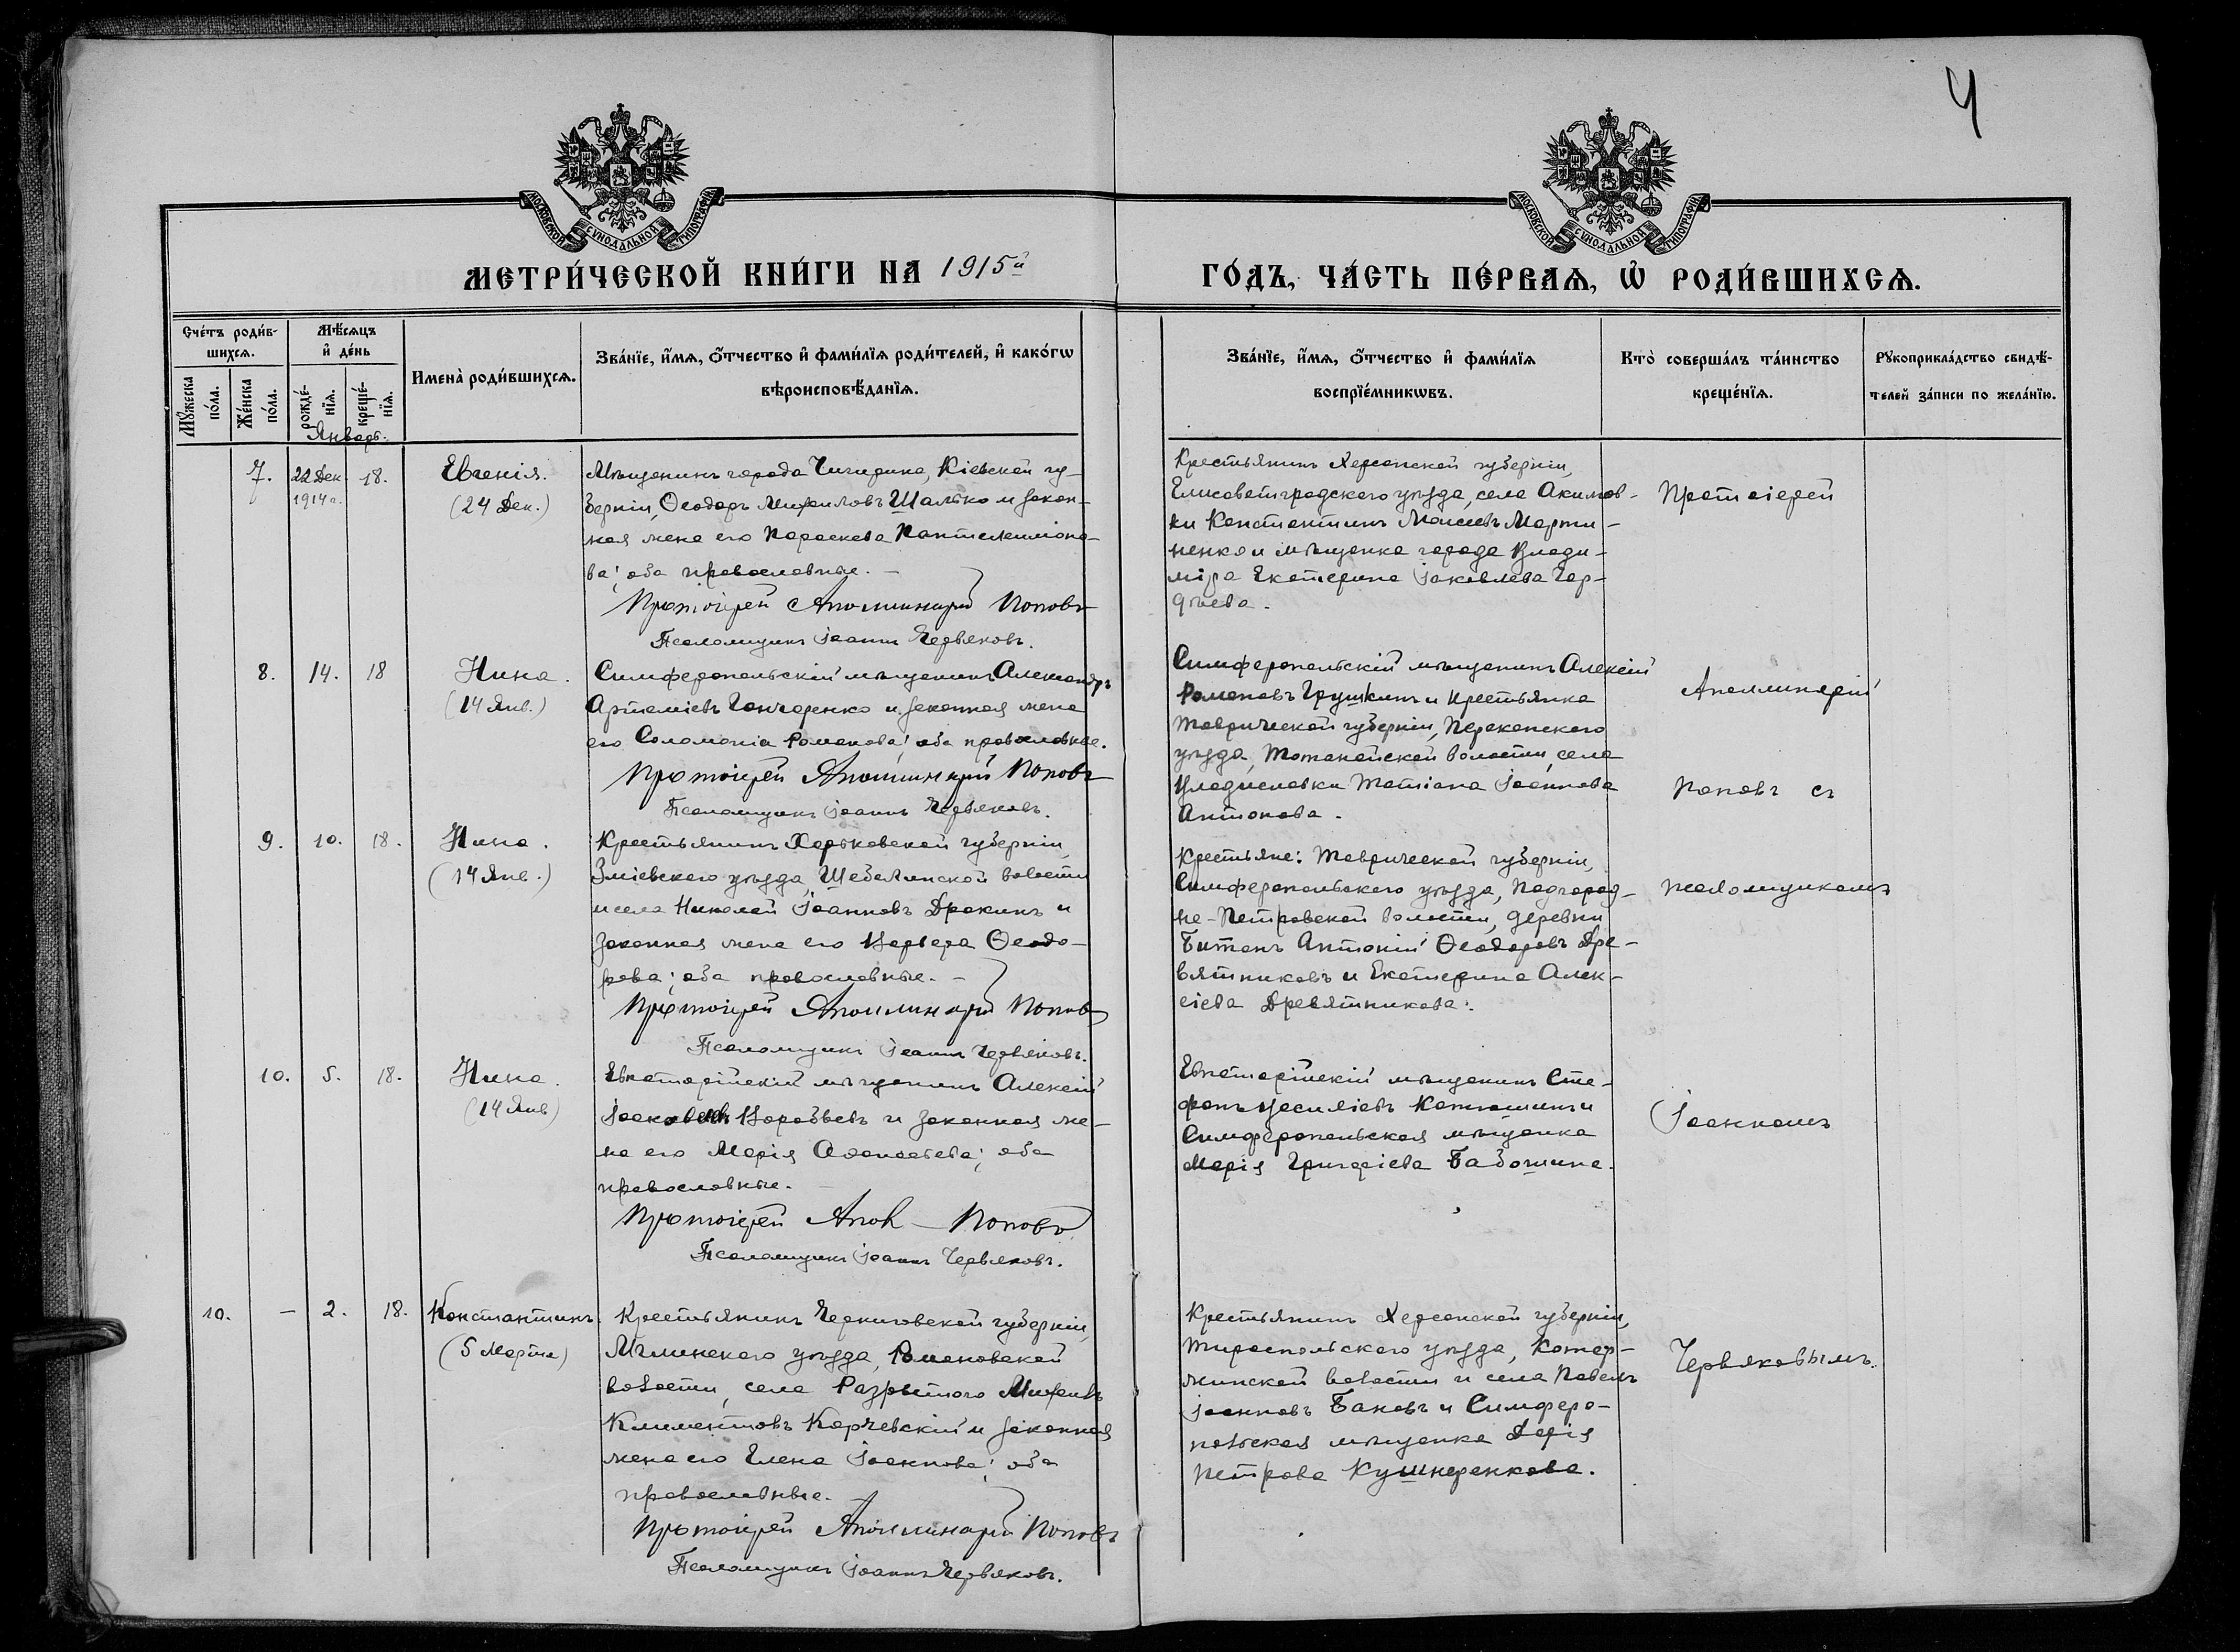 4
МОСКОВСКОЙ СѴНОДАЛЬНОЙ ТИПОГРАФІИ
МОСКОВСКОЙ СѴНОДАЛЬНОЙ ТИПОГРАФІИ
МЕТРИ́ЧЕСКОЙ КНИ́ГИ НА 1915й
ГО́ДЪ, ЧА́СТЬ ПЕ́РВАѦ, Ѡ҆ РОДИ́ВШИХСѦ.
Сче́тъ роди́в-
шихсѧ.
Мꙋ́жеска
по́ла.
Же́нска
по́ла.
Мѣ́сѧцъ
и҆ де́нь
рожде́-
нїѧ.
креще́-
нїѧ.
Имена̀ роди́вшихсѧ.
Зва́нїе, и҆́мѧ, ѻ҆́тчество и҆ фами́лїѧ роди́телей, и҆ како́гѡ
вѣроисповѣ́данїѧ.
Зва́нїе, и҆́мѧ, ѻ҆́тчество и҆ фами́лїѧ
воспрїе́мникѡвъ.
Кто̀ соверша́лъ та́инство
креще́нїѧ.
Рꙋкоприкла́дство свидѣ́-
телей за́писи по жела́нїю.
Январь.
7.
22 Дек
1914 г.
18.
Евгенія.
(24 Дек.)
Мѣщанинъ города Чигирина, Кіевской гу-
берніи, Ѳеодоръ Михаиловъ Шалько и закон-
ная жена его Параскева Пантелеимоно-
ва; оба православные. —
Протоіерей Аполлинарій Поповъ
Псаломщикъ Іоаннъ Червяковъ.
Крестьянинъ Херсонской губерніи,
Елисаветградского уѣзда, села Акимов-
ки Константинъ Моисеевъ Марти-
ненко и мѣщанка города Влади-
міра Екатерина Іаковлева Гор-
дѣева.
8.
14.
18
Нина.
(14 Янв.)
Симферопольскій мѣщанинъ Александръ
Артеміевъ Гончаренко и законная жена
его Соломонія Романова; оба православные.
Протоіерей Аполлинарій Поповъ
Псаломщикъ Іоаннъ Червяковъ.
Симферопольскій мѣщанинъ Алексій
Романовъ Грушкинъ и крестьянка
Таврической губерніи, Перекопского
уѣзда, Тотанайской волости, села
Владиславки Татіана Іоаннова
Антонова.
9.
10.
18.
Нина.
(14 Янв.)
Крестьянинъ Харьковской губерніи,
Зміевского уѣзда, Шебелинской волости
и села Николай Іоанновъ Дракинъ и
законная жена его Варвара Ѳеодо-
рова; оба православные. —
Протоіерей Аполлинарій Поповъ
Псаломщикъ Іоаннъ Червяковъ.
Крестьяне: Таврической губерніи,
Симферопольского уѣзда, Подгород-
не-Петровской волости, деревни
Битакъ Антоній Ѳеодоровъ Дре-
вятниковъ и Екатерина Алек-
сіева Древятникова.
10.
5.
18.
Нина.
(14 Янв)
Евпаторійскій мѣщанинъ Алексій
Іаковлевъ Воробьевъ и законная же-
на его Марія Аѳанасьева; оба
православные. —
Протоіерей Апол Поповъ
Псаломщикъ Іоаннъ Червяковъ.
Евпаторійскій мѣщанинъ Сте-
фанъ Василіевъ Катюшинъ и
Симферопольская мѣщанка
Марія Григоріева Бабошина.
10.
—
2.
18.
Константинъ.
(5 Марта)
Крестьянинъ Черниговской губерніи,
Мглинского уѣзда, Романовской
волости, села Разрытого Михаилъ
Климентовъ Карчевскій и законная
жена его Елена Іоаннова; оба
православные. —
Протоіерей Аполлинарій Поповъ
Псаломщикъ Іоаннъ Червяковъ.
Крестьянинъ Херсонской губерніи,
Тираспольского уѣзда, Катар-
жинской волости и села Павелъ
Іоанновъ Бановъ и Симферо-
польская мѣщанка Дарія
Петрова Кушнеренкова.
Протоіерей
Аполлинарій
Поповъ съ
псаломщикомъ
Іоанномъ
Червяковымъ.